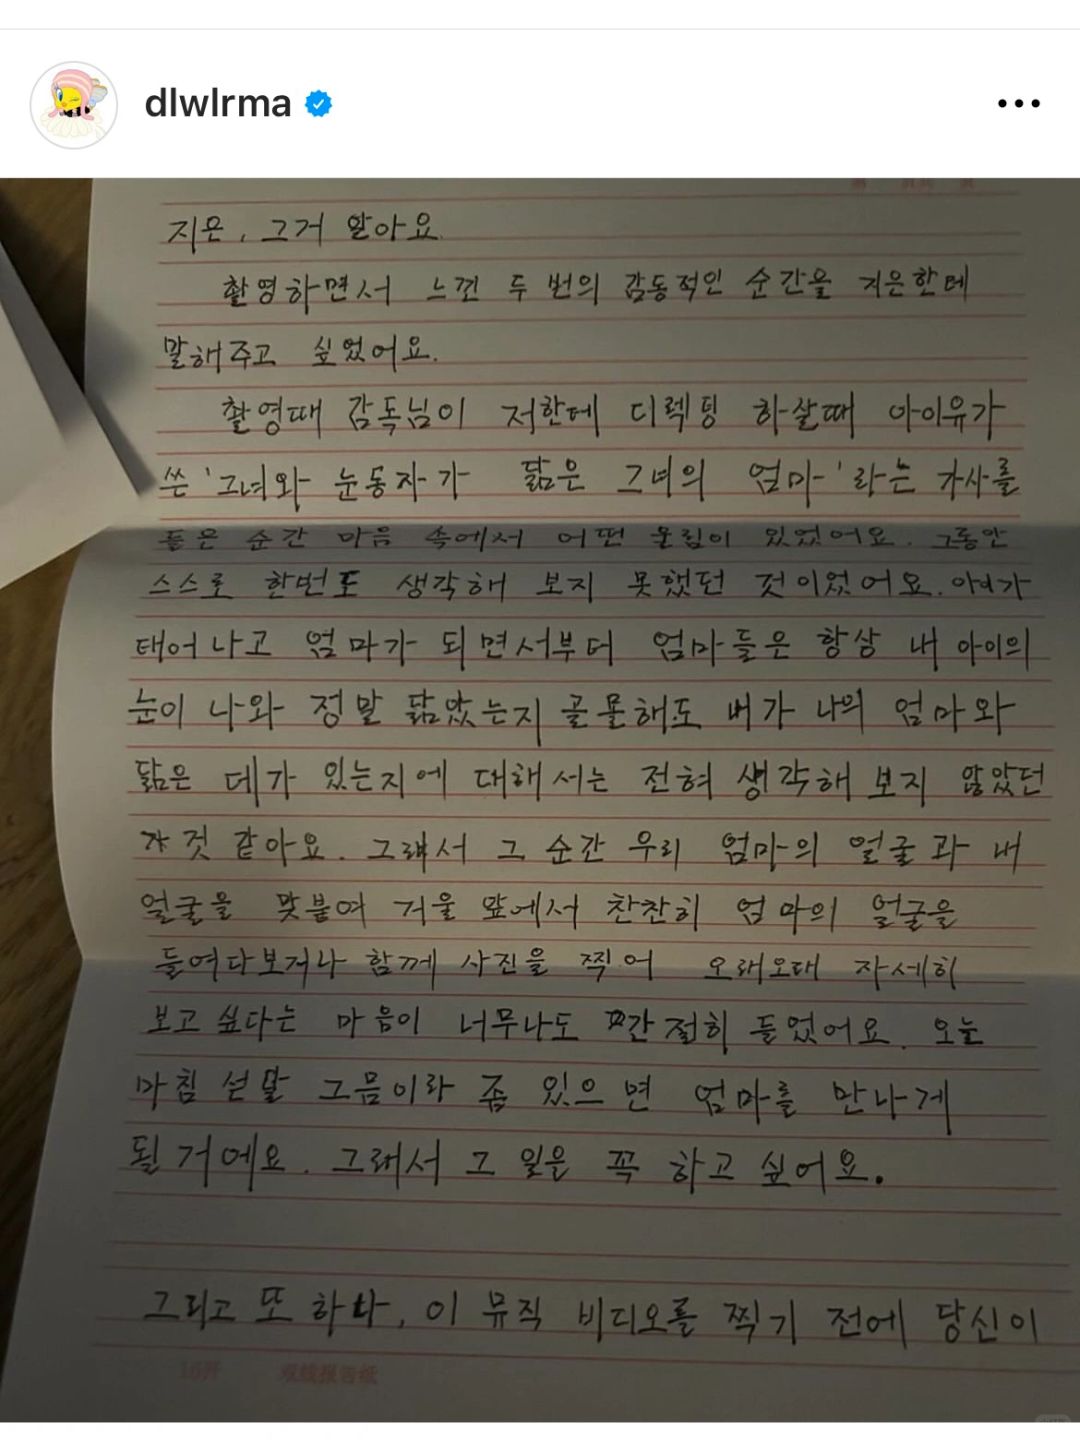 dlwlrma
지은, 그거 알아요.
촬영하면서 느낀 두 번의 감동적인 순간을 지은한테
말해주고 싶었어요.
촬영때 감독님이 저한테 디렉팅 하살때 아이유가
쓴 '그녀와 눈동자가 닮은 그녀의 엄마'라는 가사를
들은 순간 마음 속에서 어떤 울림이 있었어요. 그동안
스스로 한번도 생각해 보지 못했던 것이었어요. 아이가
태어나고 엄마가 되면서부터 엄마들은 항상 내 아이의
눈이 나와 정말 닮았는지 골몰해도 내가 나의 엄마와
닮은 데가 있는지에 대해서는 전혀 생각해 보지 않았던
것 같아요. 그래서 그 순간 우리 엄마의 얼굴과 내
얼굴을 맞붙여 거울 앞에서 찬찬히 엄마의 얼굴을
들여다보거나 함께 사진을 찍어 오래오래 자세히
보고 싶다는 마음이 너무나도 간절히 들었어요. 오늘
마침 섣달 그믐이라 좀 있으면 엄마를 만나게
될 거예요. 그래서 그 일은 꼭 하고 싶어요.
그리고 또 하나, 이 뮤직 비디오를 찍기 전에 당신이
16开 双线报告纸